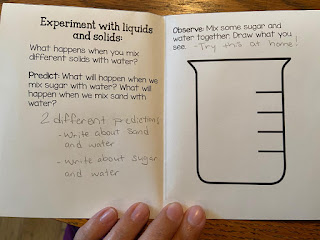 Experiment with liquids
and solids:
What happens when you mix
different solids with water?
Predict: What will happen when we
mix sugar with water? What will
happen when we mix sand with
water?
2 different predictions
- Write about sand
and water
- Write about sugar
and water
Observe: Mix some sugar and
water together. Draw what you
see. - Try this at home!